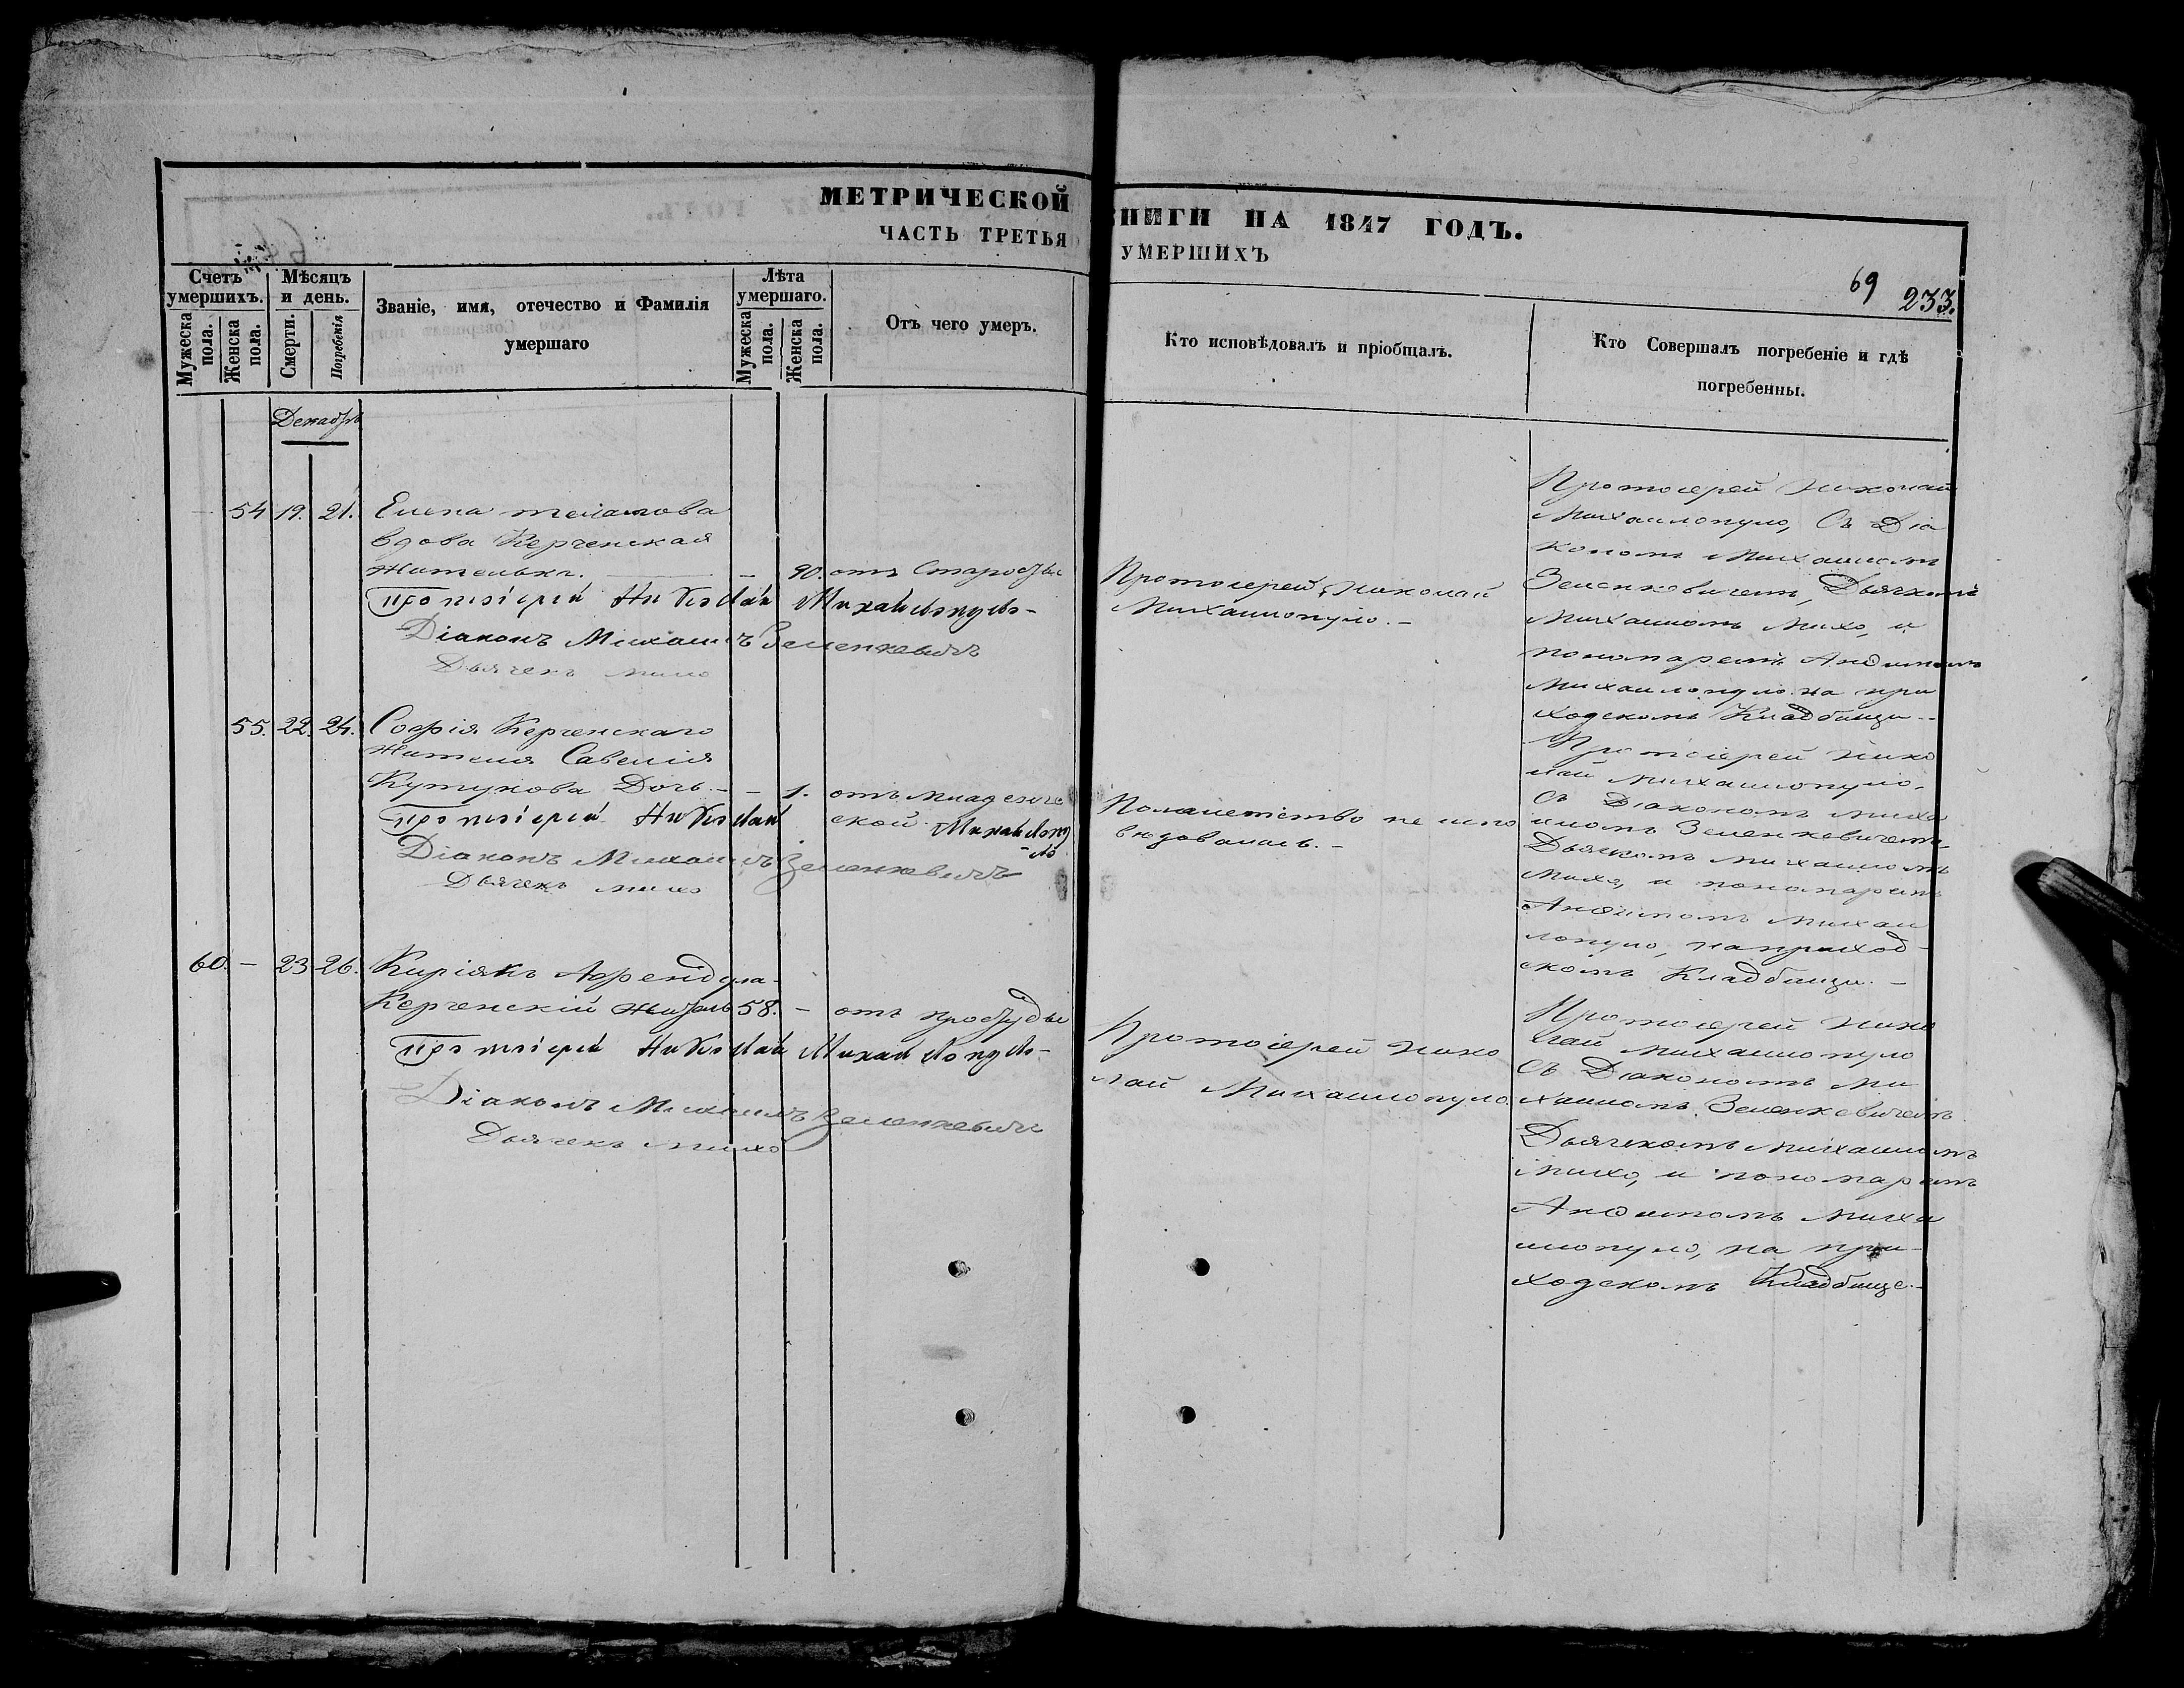 МЕТРИЧЕСКОЙ КНИГИ НА 1847 ГОДЪ.
ЧАСТЬ ТРЕТЬЯ О УМЕРШИХЪ
69 233.
Счетъ умершихъ.
Мужеска пола.
Женска пола.
Мѣсяцъ и день.
Смерти.
Погребенія
Званіе, имя, отечество и Фамилія
умершаго
Лѣта умершаго.
Мужеска пола.
Женска пола.
Отъ чего умеръ.
Кто исповѣдовалъ и пріобщалъ.
Кто Совершалъ погребеніе и гдѣ
погребенны.
Декабрь
54 19. 21. Елена
вдова Керченская
Жителька. — 90. отъ Старости
Протоіерей Николай Михайлопуло-
Діаконъ Михаилъ Зеленкевичъ
Дьячекъ Михо
Протоіерей Николай
Михаилопуло.-
Протоіерей Николай
Михаилопуло, Съ Діа
кономъ Михаиломъ
Зеленкевичемъ, Дьячкомъ
Михаиломъ Михо, и
пономаремъ Анѳимомъ
Михаилопуло на при
ходскомъ Кладбищи.-
55. 22. 24. Софія Керченскаго
Жителя Савелія
Кутукова Дочь.- - 1. отъ младенче
ской
Протоіерей Николай Михайлопу
-ло
Діаконъ Михаилъ Зеленкевичъ
Дьячекъ Михо
По малетству не испо
вѣдовалась.-
Протоіерей Нико
лай Михаилопуло,
съ Діакономъ Миха
иломъ Зеленкевичемъ
Дьячкомъ Михаиломъ
Михо, и пономаремъ
Анѳимомъ Михаи
лопуло, на приход-
скомъ Кладбищи.-
60. - 23 26. Киріякъ Афендула
Керченскій Житель 58. - отъ простуды
Протоіерей Николай Михайлопуло-
Діаконъ Михаилъ Зеленкевичъ
Дьячекъ Михо
Протоіерей Нико
лай Михаилопуло.
Протоіерей Нико
лай Михаилопуло
Съ Діакономъ Ми
хаиломъ Зеленкевичемъ
Дьячкомъ Михаиломъ
Михо, и пономаремъ
Анѳимомъ Миха
илопуло, на при-
ходскомъ Кладбище.-